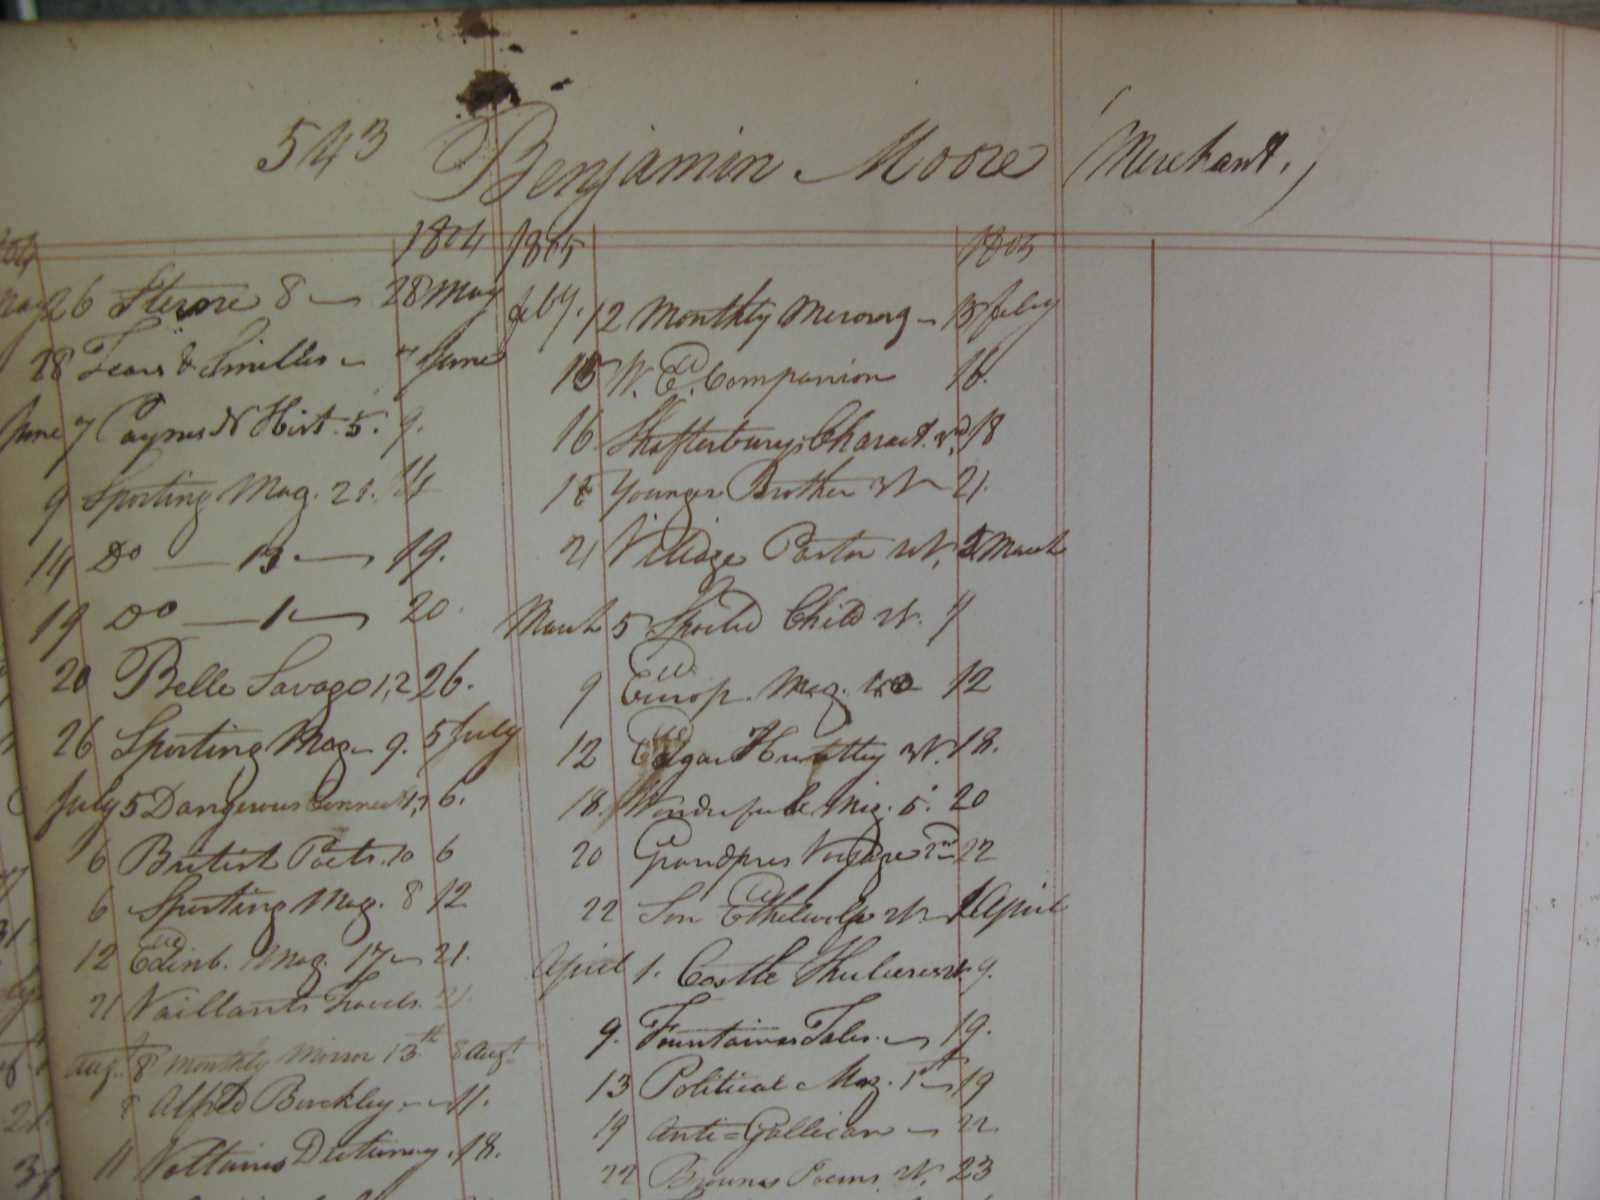 543 Benjamin Moore (Merchant.)
1804
26 Sterne 8 — 28 May
28 Tears & Smiles — 7 June
June 7 9.
9 Sporting Mag. 21. 14
14 Do — 13 — 19.
19 Do — 1 — 20.
20 Belle Savage 1,2 26.
26 Sporting Mag — 9. 5 July
July 5 Dangerous Connect 6.
6 British Poets. 10 6
6 Sporting Mag. 8 12
12 Edinb. Mag. 17 — 21.
21 Vaillants Travels. 21.
Augt. 8 Monthly Mirror 13th 8 Augt
8 Alfred Berckley — 11.
11 Voltaires Dictionary. 18.
1805 1805
Feby. 12 Monthly — 15 Feby
15 W. Companion 16.
16 Shaftesburys Charact. 18
18 Younger Brother 21.
21 Village Pastor 5 March
March 5 Spoiled Child 9
9 Europ. Mag. 12
12 Edgar Huntley 18.
18. Wonderful Mag. 5. 20
20 Grandpres Voyage 22
22 Son Ethelwolf 1 April
April 1. Castle 9.
9. Fountainvs Tales. — 19.
13 Political Mag. 1st — 19
19 Anti=Gallican — 22
22 Browns Poems 23